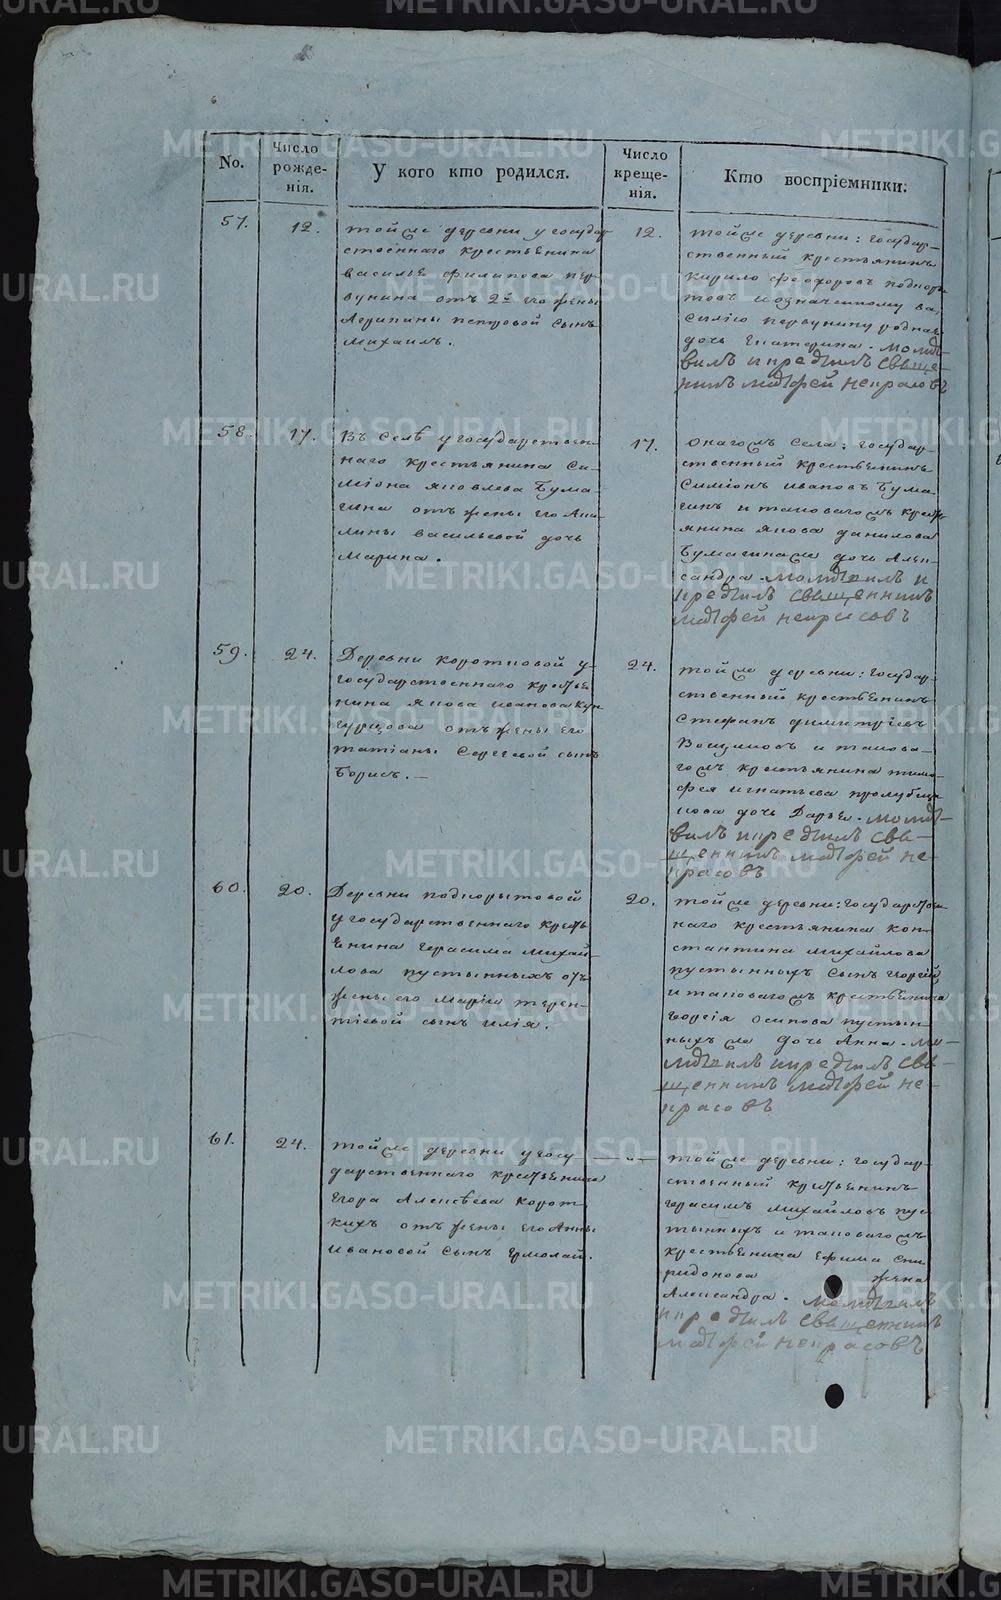 No.
Число рожденія.
У кого кто родился.
Число крещенія.
Кто воспріемники.
57.
12.
тойже деревни у государ
ственнаго крестьянина
василья филипова пер
вунина отъ 2й его жены
Агрипины петровой сынъ
михаилъ.
12.
тойже деревни: государ-
ственный крестьянинъ
кирило феодоровъ подкоры
товъ и означенному ва
силію первунину родная
дочь Екатерина. молит
вилъ и крестилъ священ
никъ матфей некрасовъ
58.
17.
Въ Селѣ у государствен-
наго крестьянина Си-
міона яковлева Бума-
гина отъ жены его Аки-
лины васильевой дочь
марина.
17.
онагожъ Села: государ-
ственный крестьянинъ
Симіонъ ивановъ Бума
гинъ и таковагожъ крестъ
янина якова данилова
Бумагина же дочь Алек-
сандра. молитвилъ и
крестилъ священникъ
матфей некрасовъ
59.
24.
Деревни коротковой у-
государственнаго крестье
нина якова иванова кун
гурцова отъ жены его
татіаны Сергеевой сынъ
Борисъ.—
24.
тойже деревни: государ-
ственный крестьянинъ
Стефанъ димитріевъ
и таково-
гожъ крестьянина тимо-
фея игнатьева пролубщи
кова дочь Дарья. молит-
вилъ и крестилъ свя-
щенникъ матфей не-
красовъ
60.
20.
Деревни подкорытовой
у государственнаго кресть
енина герасима михай-
лова пустынныхъ отъ
жены его маріи терен-
тіевой сынъ илія.
20.
тойже деревни: государствен-
наго крестьянина кон-
стантина михайлова
пустынныхъ сынъ георгій
и таковагожъ крестьенина
георгія осипова пустын-
ныхъ же дочь Анна. мо-
литвилъ и крестилъ свя-
щенникъ матфей не-
красовъ
61.
24.
тойже деревни у госу-
дарственнаго крестьенина
Егора Алексѣева корот-
кихъ отъ жены его Анны
ивановой сынъ ермолай.
тойже деревни: государ-
ственный крестьенинъ
герасимъ михайловъ пус-
тынныхъ и таковагожъ
крестьенина Ефима Спи
ридонова жена
Александра. молитвилъ
и крестилъ священникъ
матфей некрасовъ
METRIKI.GASO-URAL.RU